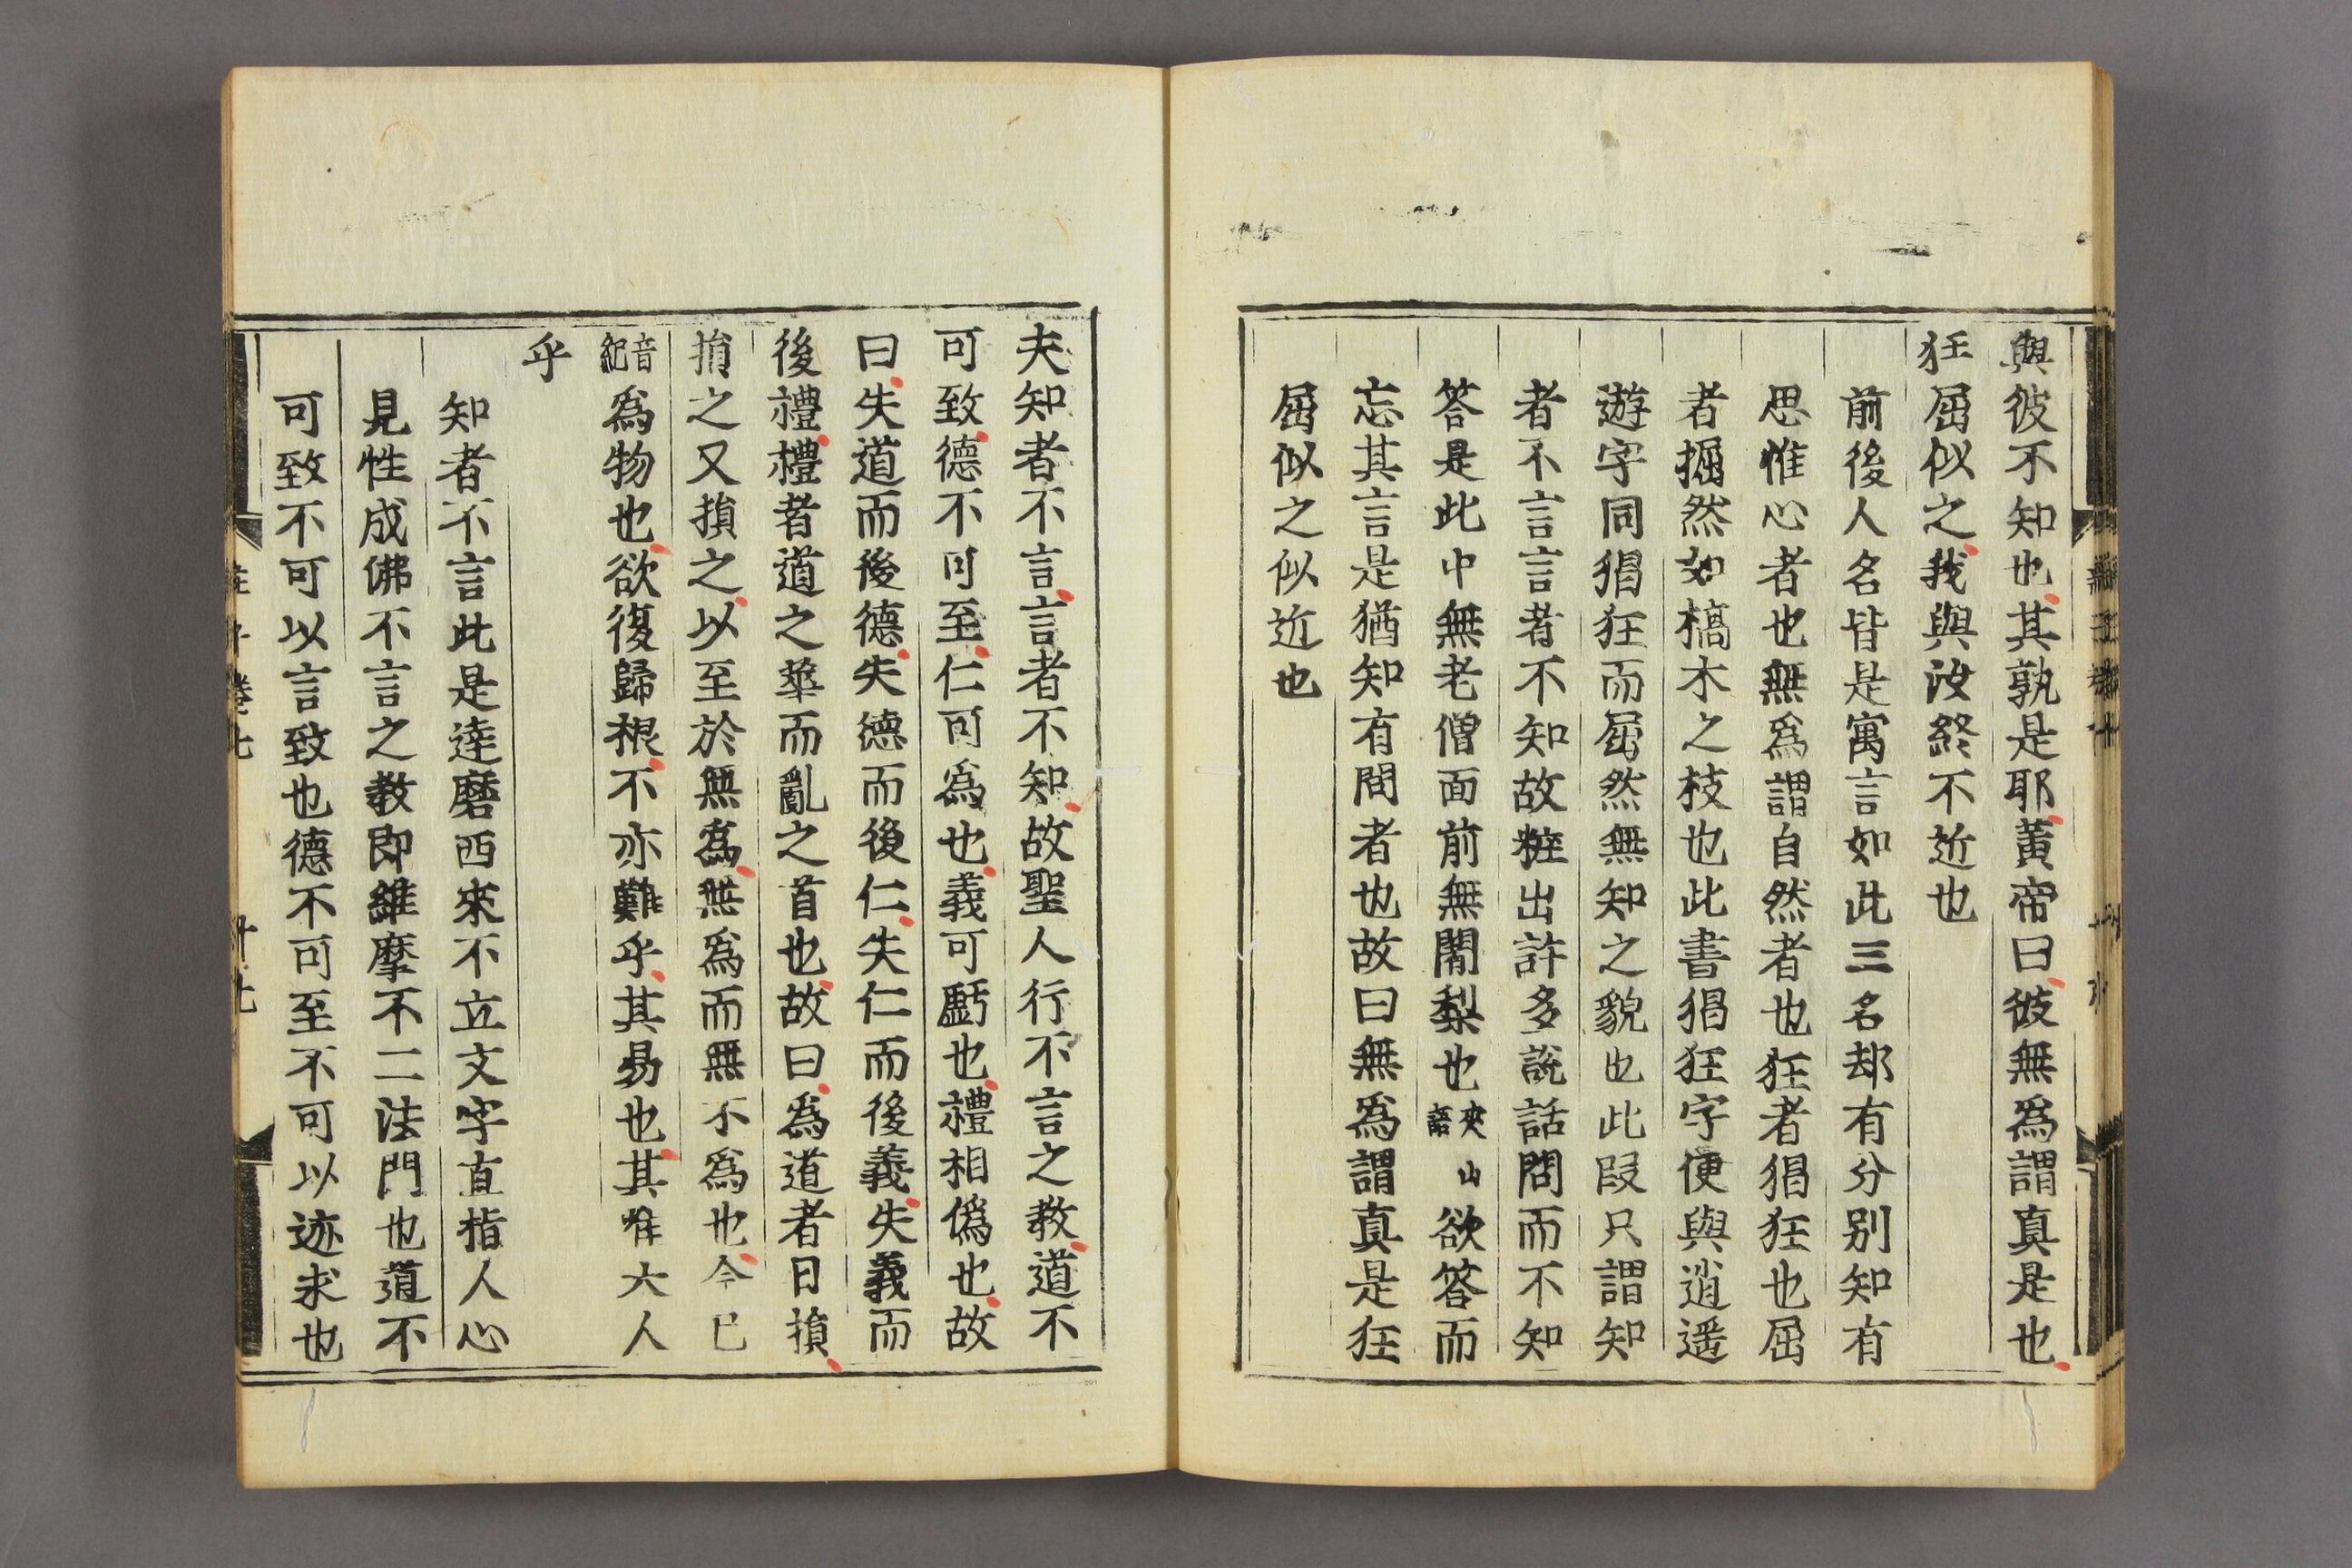 與彼不知也其孰是耶黃帝曰彼無爲謂真是也
狂屈似之我與汝終不近也
前後人名皆是寓言如此三名却有分别知有
思惟心者也無爲謂自然者也狂者猖狂也屈
者掘然如槁木之枝也此書猖狂字便與逍遥
遊字同猖狂而屈然無知之貌也此段只謂知
者不言言者不知故粧出許多說話問而不知
答是此中無老僧面前無闍梨也夾山語欲答而
忘其言是猶知有問者也故曰無爲謂真是狂
屈似之似近也
夫知者不言言者不知故聖人行不言之教道不
可致德不可至仁可爲也義可虧也禮相僞也故
曰失道而後德失德而後仁失仁而後義失義而
後禮禮者道之華而亂之首也故曰爲道者日損
損之又損之以至於無爲無爲而無不爲也今已
音紀爲物也欲復歸根不亦難乎其易也其惟大人
乎
知者不言此是達磨西來不立文字直指人心
見性成佛不言之教即維摩不二法門也道不
可致不可以言致也德不可至不可以迹求也